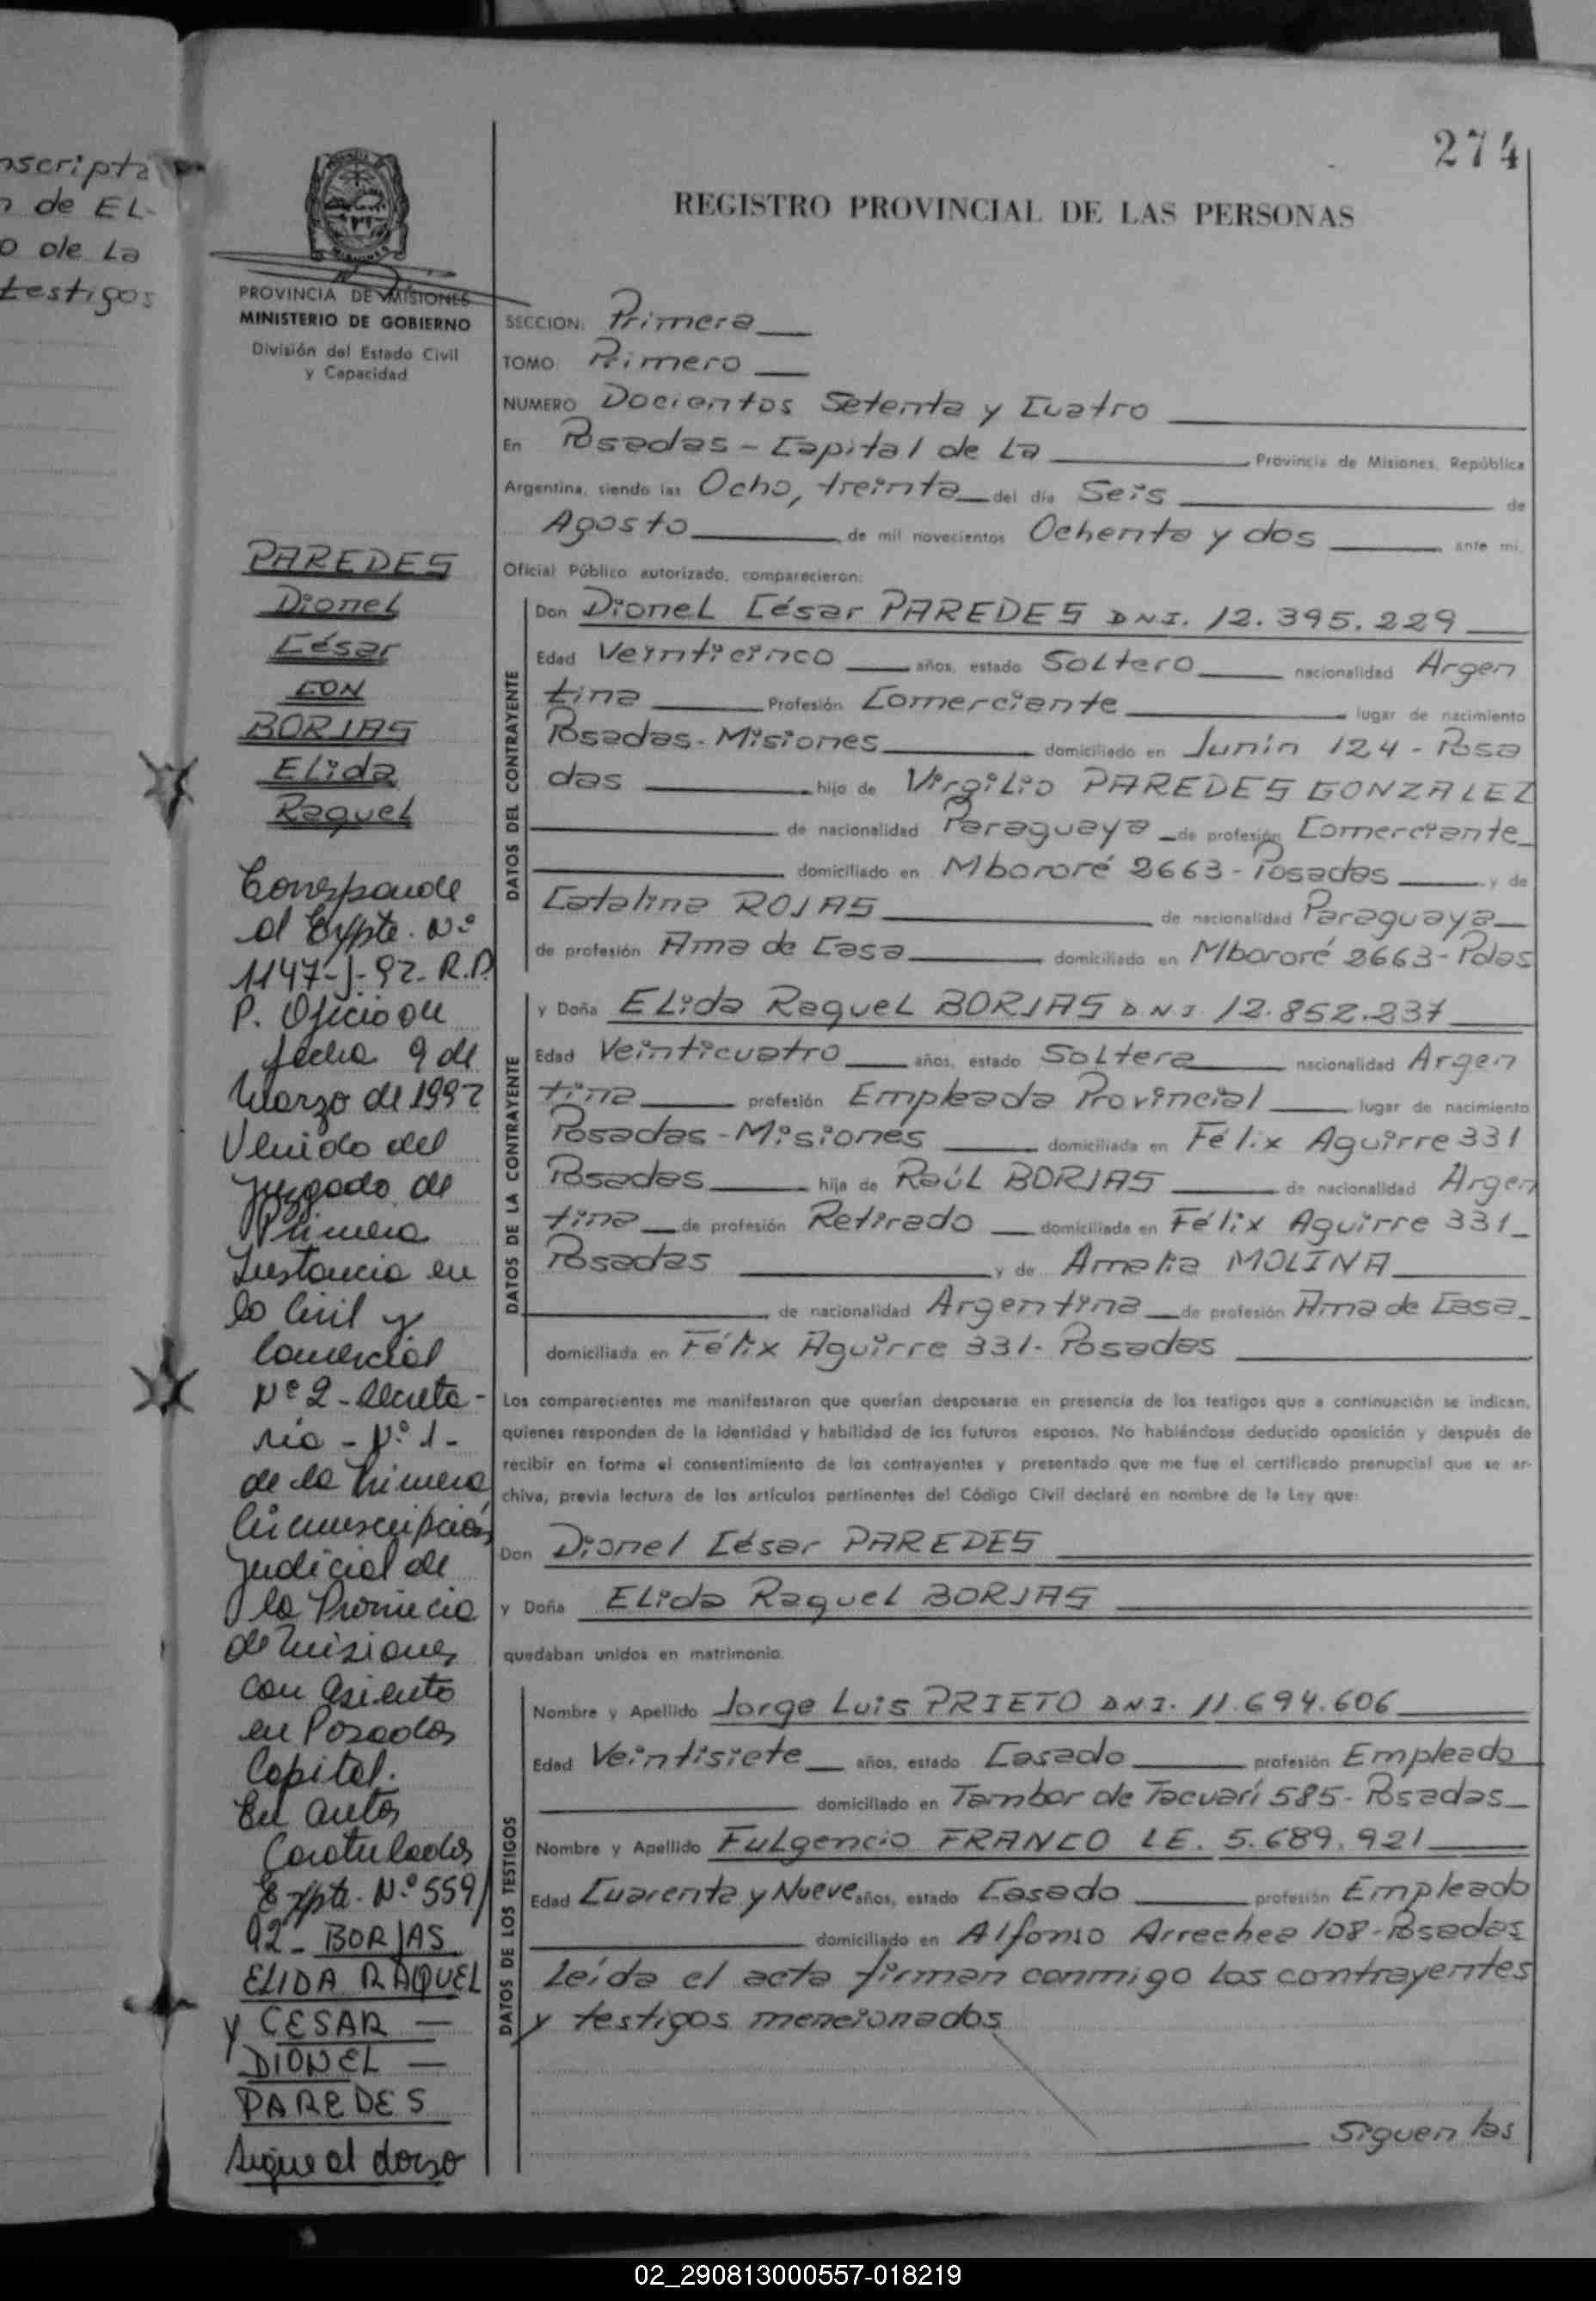 274
nscripta
n de EL-
o de La
testigos
REGISTRO PROVINCIAL DE LAS PERSONAS
PROVINCIA DE MISIONES
MINISTERIO DE GOBIERNO
División del Estado Civil
y Capacidad
PAREDES
Dionel
César
CON
BORJAS
Elida
Raquel
Corresponde
al Expte. Nº
1147-J-92- R.P.
P. Oficio de
fecha 9 de
Marzo de 1992
Venido del
Juzgado de
Primera
Instancia en
lo Civil y
Comercial
Nº 2 - Secreta-
ria - Nº 1 -
de la Primera
Circunscripción
Judicial de
la Provincia
de Misiones
con asiento
en Posadas
Capital.
En autos
Caratulados
Expte. Nº 559/
92 - BORJAS
ELIDA RAQUEL
y CESAR —
DIONEL —
PAREDES
Sigue al dorso
SECCION: Primera
TOMO: Primero
NUMERO Docientos Setenta y Cuatro
En Posadas - Capital de La Provincia de Misiones, República
Argentina, siendo las Ocho, treinta del día Seis de
Agosto de mil novecientos Ochenta y dos ante mí,
Oficial Público autorizado, comparecieron:
DATOS DEL CONTRAYENTE
Don Dionel César PAREDES DNI. 12.395.229
Edad Veinticinco años, estado Soltero nacionalidad Argen
tina Profesión Comerciante lugar de nacimiento
Posadas - Misiones domiciliado en Junín 124 - Posa
das hijo de Virgilio PAREDES GONZALEZ
de nacionalidad Paraguaya de profesión Comerciante
domiciliado en Mbororé 2663 - Posadas y de
Catalina ROJAS de nacionalidad Paraguaya
de profesión Ama de Casa domiciliado en Mbororé 2663 - Pdas
DATOS DE LA CONTRAYENTE
y Doña Elida Raquel BORJAS DNI 12.852.237
Edad Veinticuatro años, estado Soltera nacionalidad Argen
tina profesión Empleada Provincial lugar de nacimiento
Posadas - Misiones domiciliada en Félix Aguirre 331
Posadas hija de Raúl BORJAS de nacionalidad Argen
tina de profesión Retirado domiciliada en Félix Aguirre 331
Posadas y de Amalia MOLINA
de nacionalidad Argentina de profesión Ama de Casa
domiciliada en Félix Aguirre 331 - Posadas
Los comparecientes me manifestaron que querían desposarse en presencia de los testigos que a continuación se indican,
quienes responden de la identidad y habilidad de los futuros esposos. No habiéndose deducido oposición y después de
recibir en forma el consentimiento de los contrayentes y presentado que me fue el certificado prenupcial que se ar-
chiva, previa lectura de los artículos pertinentes del Código Civil declaré en nombre de la Ley que:
Don Dionel César PAREDES
y Doña Elida Raquel BORJAS
quedaban unidos en matrimonio.
DATOS DE LOS TESTIGOS
Nombre y Apellido Jorge Luis PRIETO DNI. 11.694.606
Edad Veintisiete años, estado Casado profesión Empleado
domiciliado en Tambor de Tacuarí 585 - Posadas
Nombre y Apellido Fulgencio FRANCO LE. 5.689.921
Edad Cuarenta y Nueve años, estado Casado profesión Empleado
domiciliado en Alfonso Arrechea 108 - Posadas
Leída el acta firman conmigo los contrayentes
y testigos mencionados
Siguen las
02_290813000557-018219